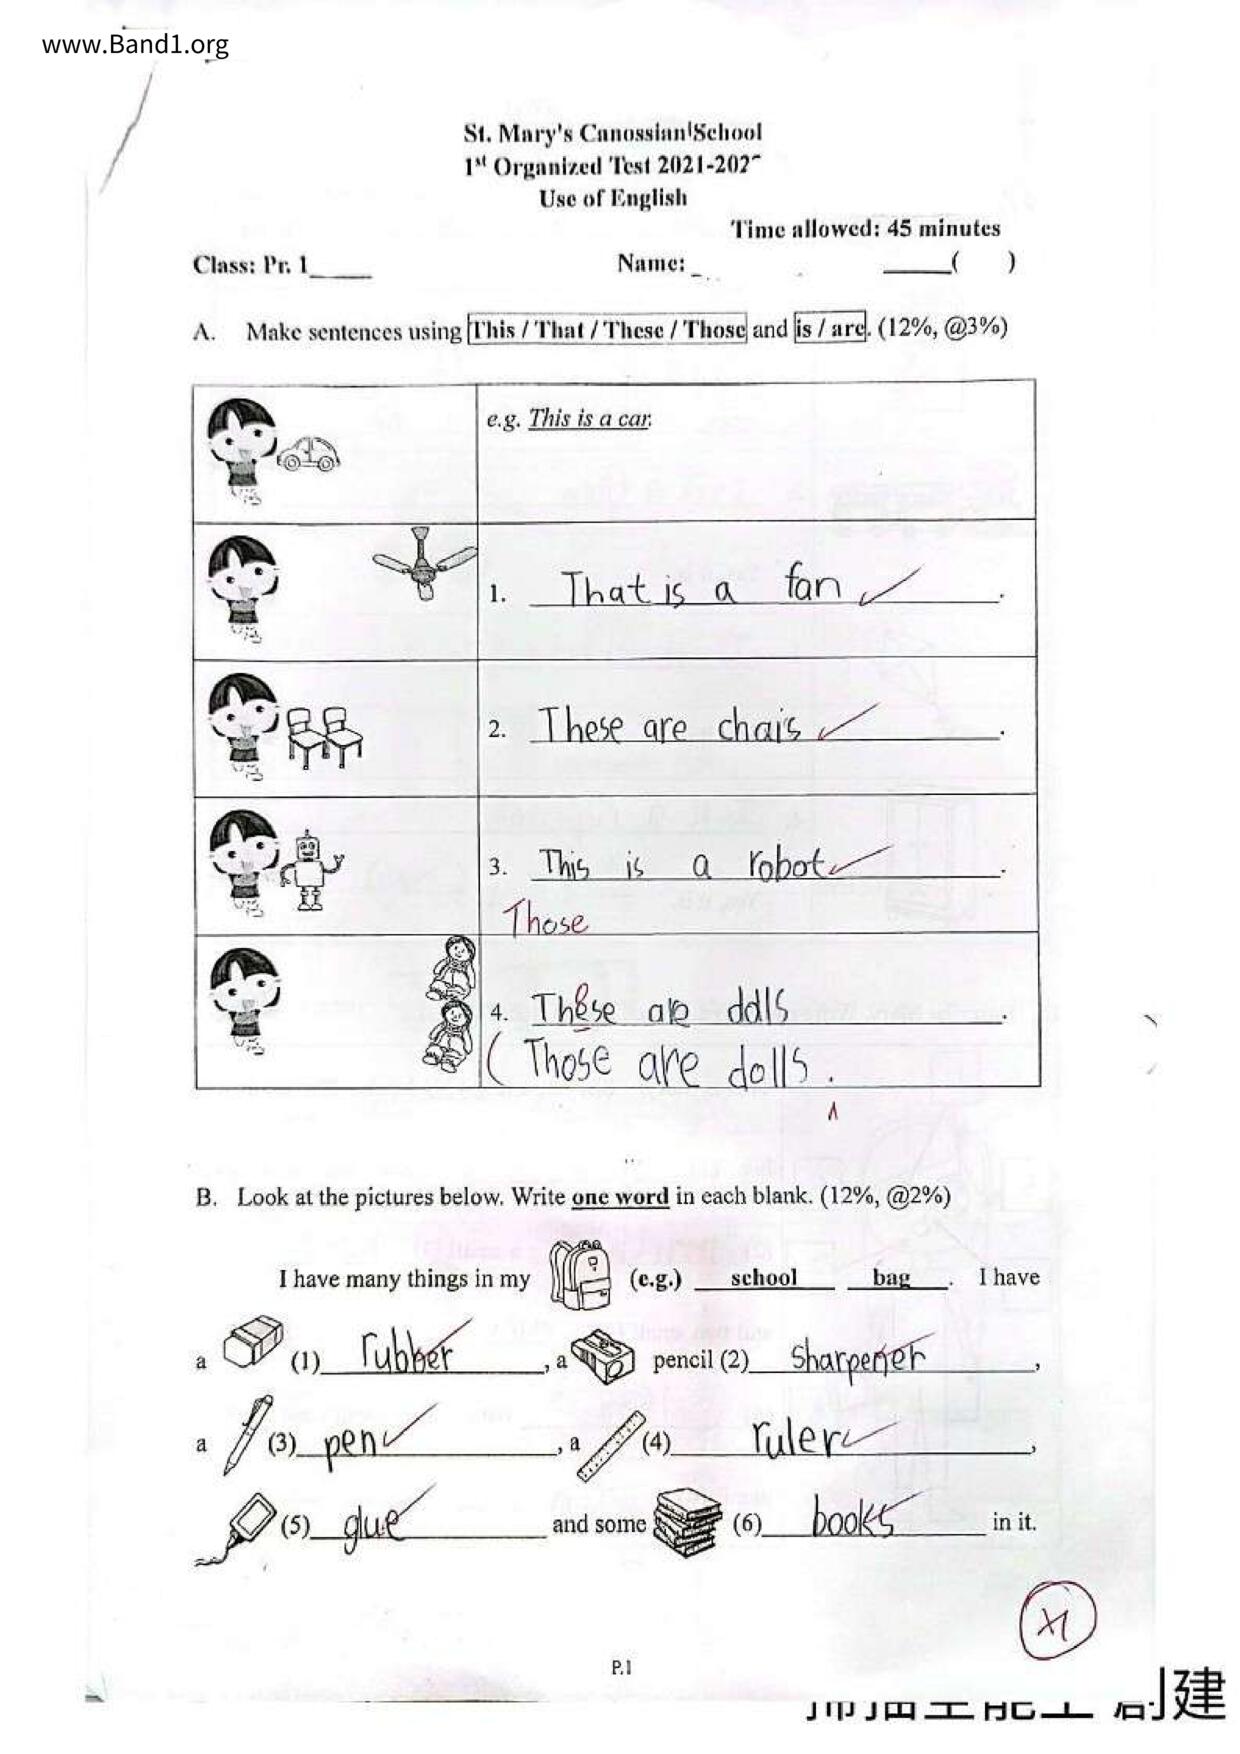 www.Band1.org
St. Mary's Canossian School
1st Organized Test 2021-202
Use of English
Time allowed: 45 minutes
Class: Pr. 1_____ Name: _ _____( )
A. Make sentences using This / That / These / Those and is / are. (12%, @3%)
e.g. This is a car.
1. That is a fan .
2. These are chais .
3. This is a robot .
Those
4. These are dolls .
( Those are dolls .
B. Look at the pictures below. Write one word in each blank. (12%, @2%)
I have many things in my (e.g.) school bag . I have
a (1) rubber , a pencil (2) sharpener ,
a (3) pen , a (4) ruler ,
(5) glue and some (6) books in it.
P.1